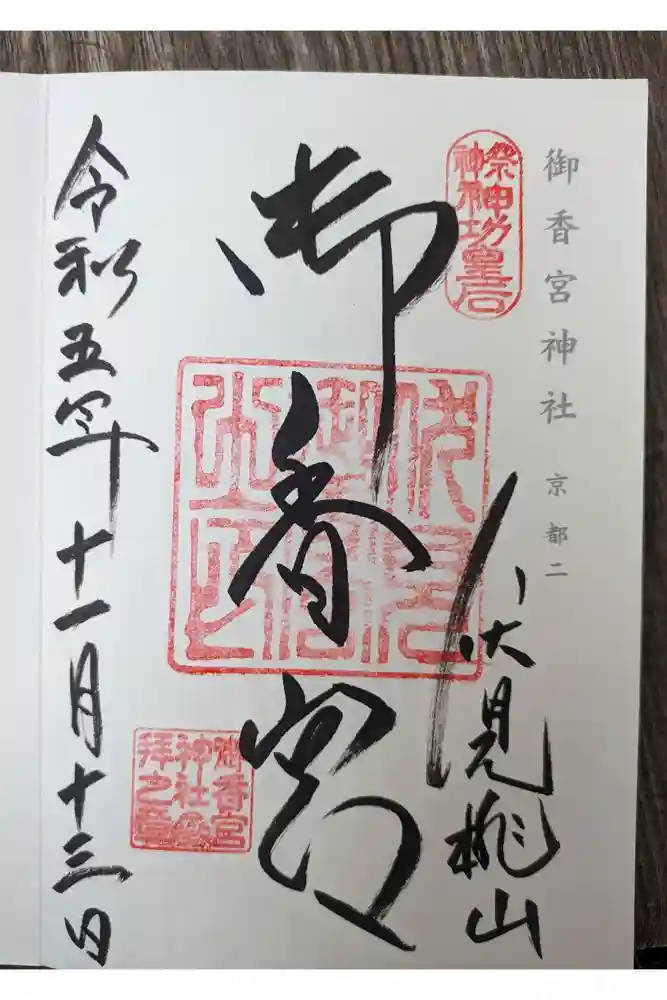 御香宮神社 京都二
祭神
神功皇后
伏見桃山
御香宮
御香宮
神社参
拝之章
令和五年十一月十三日